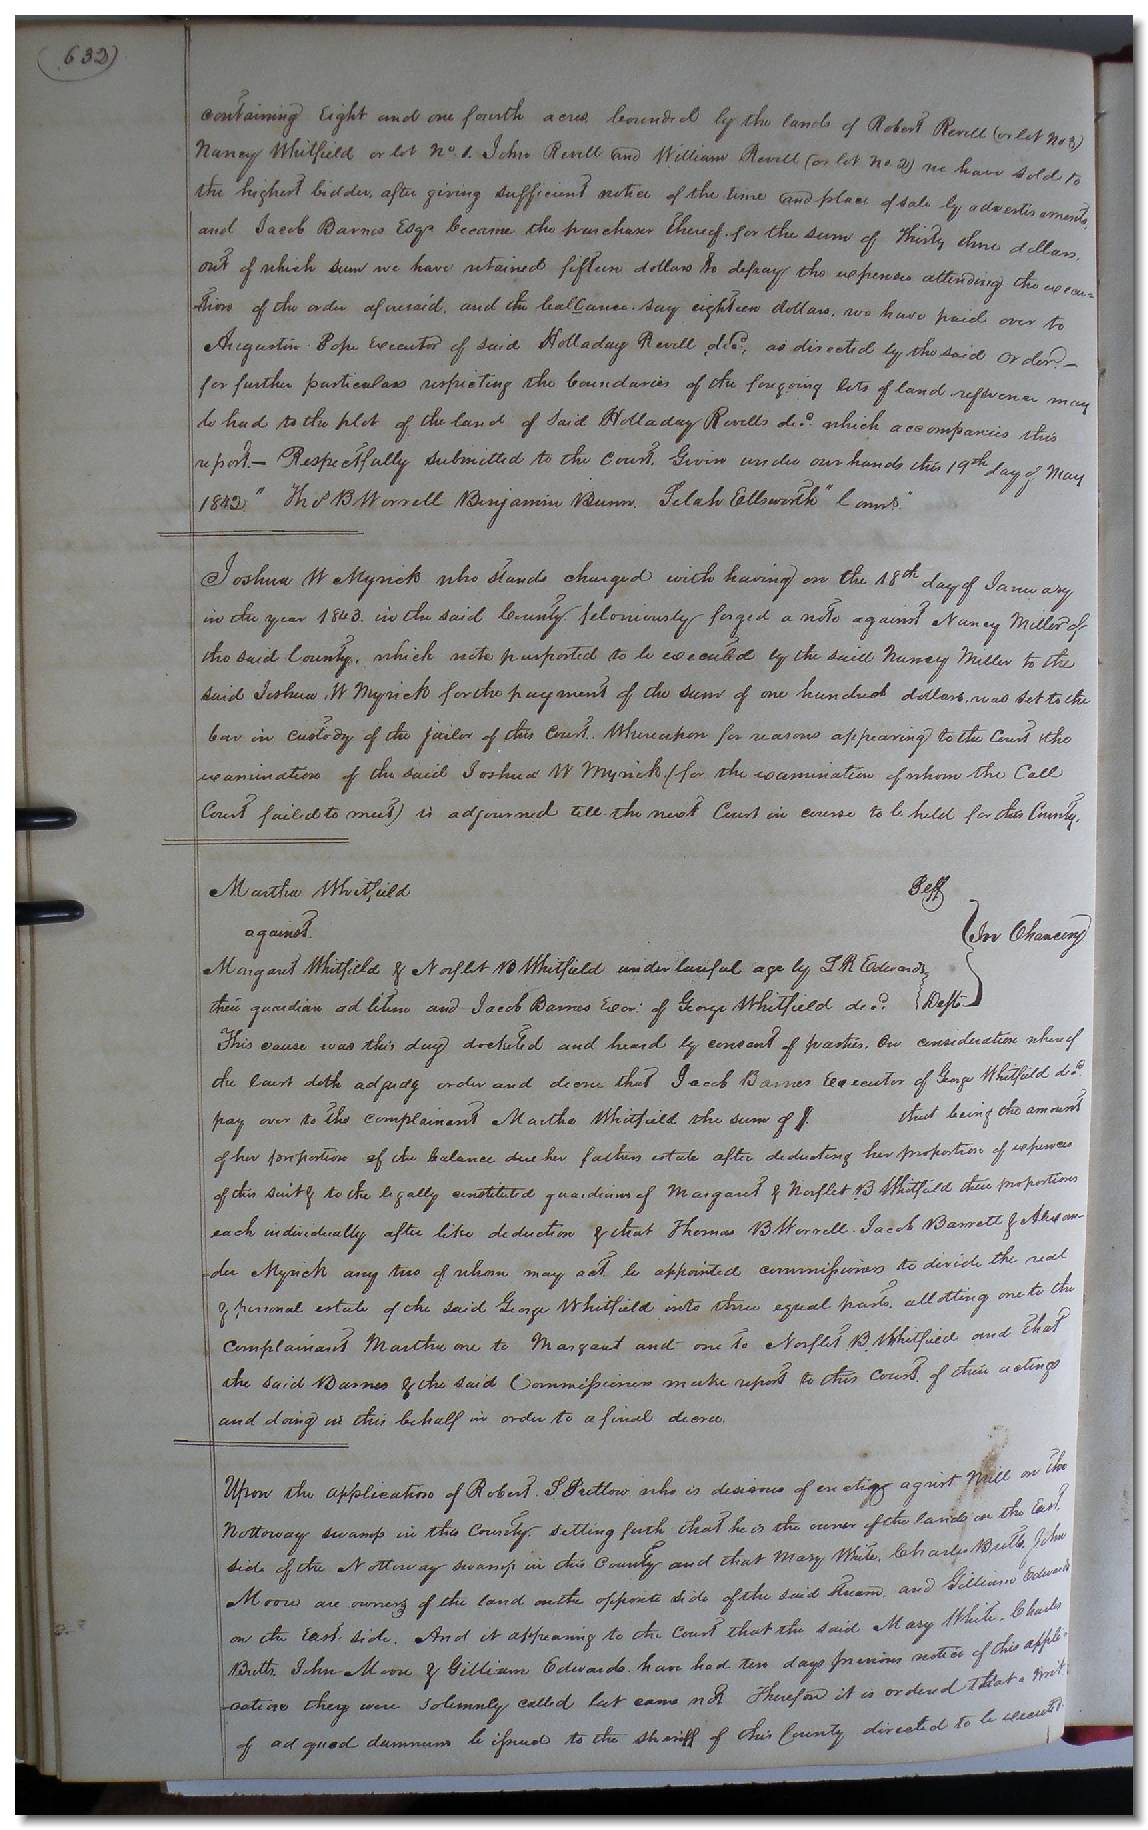 (632)
containing Eight and one fourth acres, bounded by the lands of Robert Revell (or lot No 3)
Nancy Whitfield or lot No. 1. John Revell and William Revell (or lot No. 2) we have sold to
the highest bidder, after giving sufficient notice of the time and place of sale by advertisements,
and Jacob Barnes Esqr became the purchaser thereof for the sum of Thirty three dollars.
out of which sum we have retained fifteen dollars to defray the expense attending the execu-
tion of the order aforesaid, and the ballance say eighteen dollars, we have paid over to
Augustin Pope Executor of said Holladay Revell decd, as directed by the said order.—
for further particulars respecting the boundaries of the foregoing lots of land refference may
be had to the plot of the land of said Holladay Revells decd. which accompanies this
report.— Respectfully submitted to the Court. Given under our hands this 19th day of May
1842" Tho B Worrell Benjamin Bunn. Selah Ellsworth" Comrs."
Joshua W Myrick who stands charged with having on the 18th day of January
in the year 1843. in the said County feloniously forged a note against Nancy Miller of
the said County, which note purported to be executed by the said Nancy Miller to the
said Joshua W Myrick for the payment of the sum of one hundred dollars, was set to the
bar in custody of the jailor of this Court. Whereupon for reasons appearing to the Court the
examination of the said Joshua W Myrick, (for the examination of whom the Call
Court failed to meet) is adjourned till the next Court in course to be held for this County.
Martha Whitfield Plff
against In Chancery
Margaret Whitfield & Norflet B Whitfield under lawful age by T. R Edwards
their guardian ad litem and Jacob Barnes Exor: of George Whitfield decd. Defts
This cause was this day docketed and heard by consent of parties. On consideration whereof
the Court doth adjudg order and decree that Jacob Barnes Executor of George Whitfield decd.
pay over to the complainant Martha Whitfield the sum of $ that being the amount
of her proportion of the balance due her fathers estate after deducting her proportion of expences
of this suit & to the legally constituted guardians of Margaret & Norflet B Whitfield their proportions
each individually after like deduction & that Thomas B Worrell Jacob Barrett & Alexan-
der Myrick any two of whom may act be appointed commissioners to divide the real
& personal estate of the said George Whitfield into three equal parts. allotting one to the
complainant Martha one to Margaret and one to Norflet B Whitfield and that
the said Barnes & the said Commissioners make report to this Court of their actings
and doing in this behalf in order to a final decree.
Upon the application of Robert S Pretlow who is desirous of erecting a grist mill on the
Nottoway swamp in this County setting forth that he is the owner of the lands on the East
side of the Nottoway swamp in this County and that Mary White, Charles Butts, John
Moore are owners of the land on the opposite side of the said stream, and Gilliam Edwards
on the East side. And it appearing to the Court that the said Mary White, Charles
Butts John Moore & Gilliam Edwards have had ten days previous notice of this appli-
cation they were solemnly called but came not Therefore it is ordered that a writ
of ad quod damnum be issued to the sheriff of this County directed to be executed